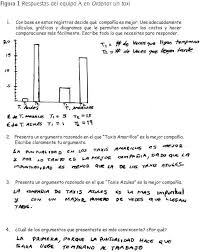 Figura 1 Respuestas del equipo A en Ordenar un taxi
1. Con base en estos registros decide qué compañía es mejor. Usa adecuadamente
cálculos, gráficas y diagramas que te permitan evaluar los costos y hacer
comparaciones más fácilmente. Escribe todo lo que sea necesario para responder.
T1 = # de Veces que llegan temprano
T2 = # de Veces que llegan tarde
20
15
10
5
T. Azules
T. Amarillos
2. Presenta un argumento razonado en el que "Taxis Amarillos" es la mejor compañía.
Escribe claramente tu argumento.
LA PUNTUALIDAD EN LOS TAXIS AMARILLOS ES MEJOR
Y POR LO TANTO ES LA MEJOR COMPAÑIA, DADO QUE LA
IMPUNTUALIDAD ES MENOR QUE LA DE LOS TAXIS AZULES.
3. Presenta un argumento razonado en el que "Taxis Azules" es la mejor compañía.
LA COMPAÑIA DE TAXIS AZULES ES LA MAS
Y CON UN MAYOR NUMERO DE VECES QUE LLEGAN
TARDE.
4. ¿Cuál de los argumentos que presentaste es más convincente? ¿Por qué?
LA PRIMERA, PORQUE LA PUNTUALIDAD HACE QUE
LLEGUE TEMPRANO AL TRABAJO